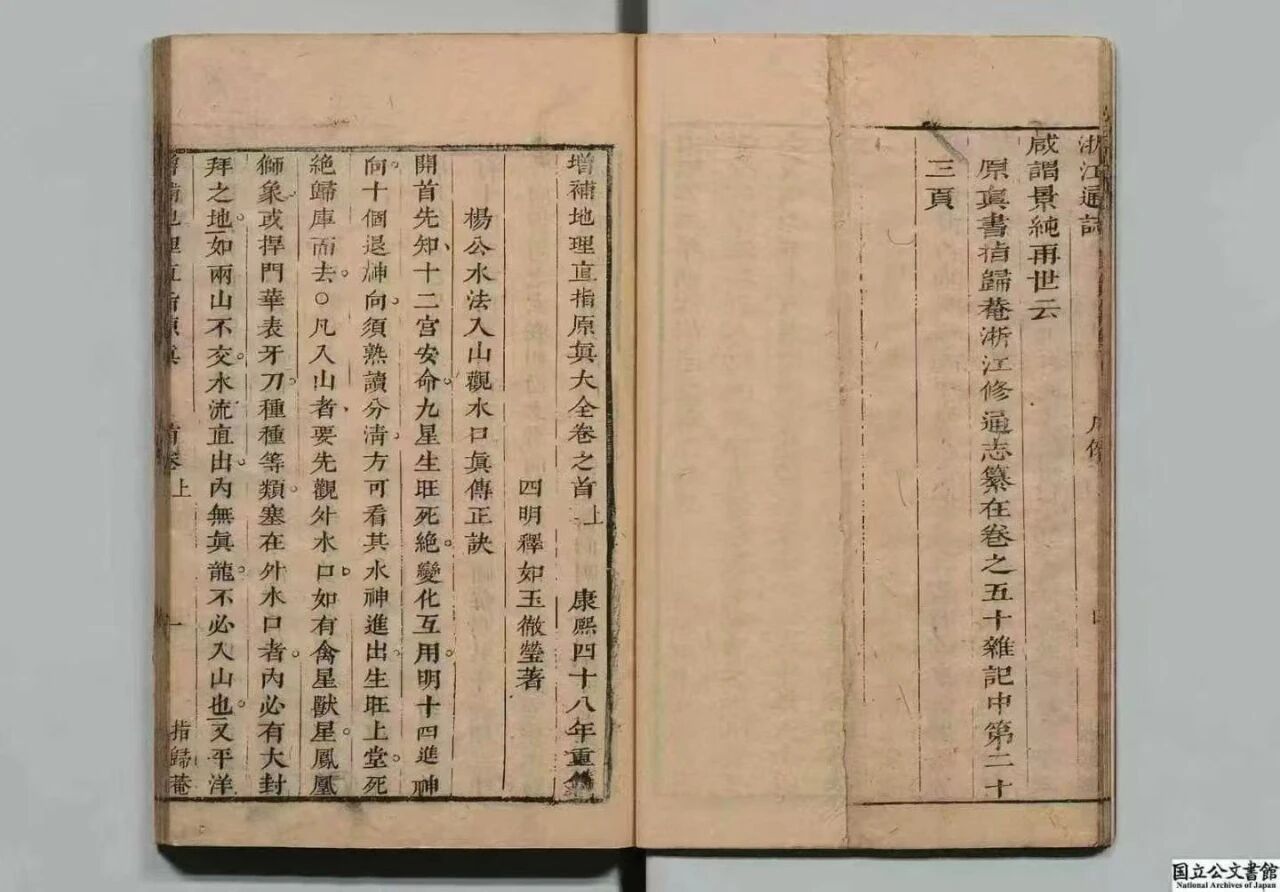 浙江通誌
咸謂景純再世云
原眞書指歸菴浙江修通志纂在卷之五十雜記中第二十
三頁
增補地理直指原眞大全卷之首上　康熙四十八年重鐫
四明釋如玉徹瑩著
楊公水法入山觀水口眞傳正訣
開首先知、十二宮安命。九星生旺死絶。變化互用。明十四進神
向。十個退神向。須熟讀分淸。方可看其水神進出。生旺上堂。死
絶歸庫而去。○凡入山者要先觀外水口。如有禽星獸星。鳳凰
獅象。或捍門華表牙刀。種種等類。塞在外水口者。內必有大封
拜之地。如兩山不交。水流直出。內無眞龍。不必入山也。又平洋
增補地理直指原眞　首卷上　一　指歸菴
国立公文書館
National Archives of Japan